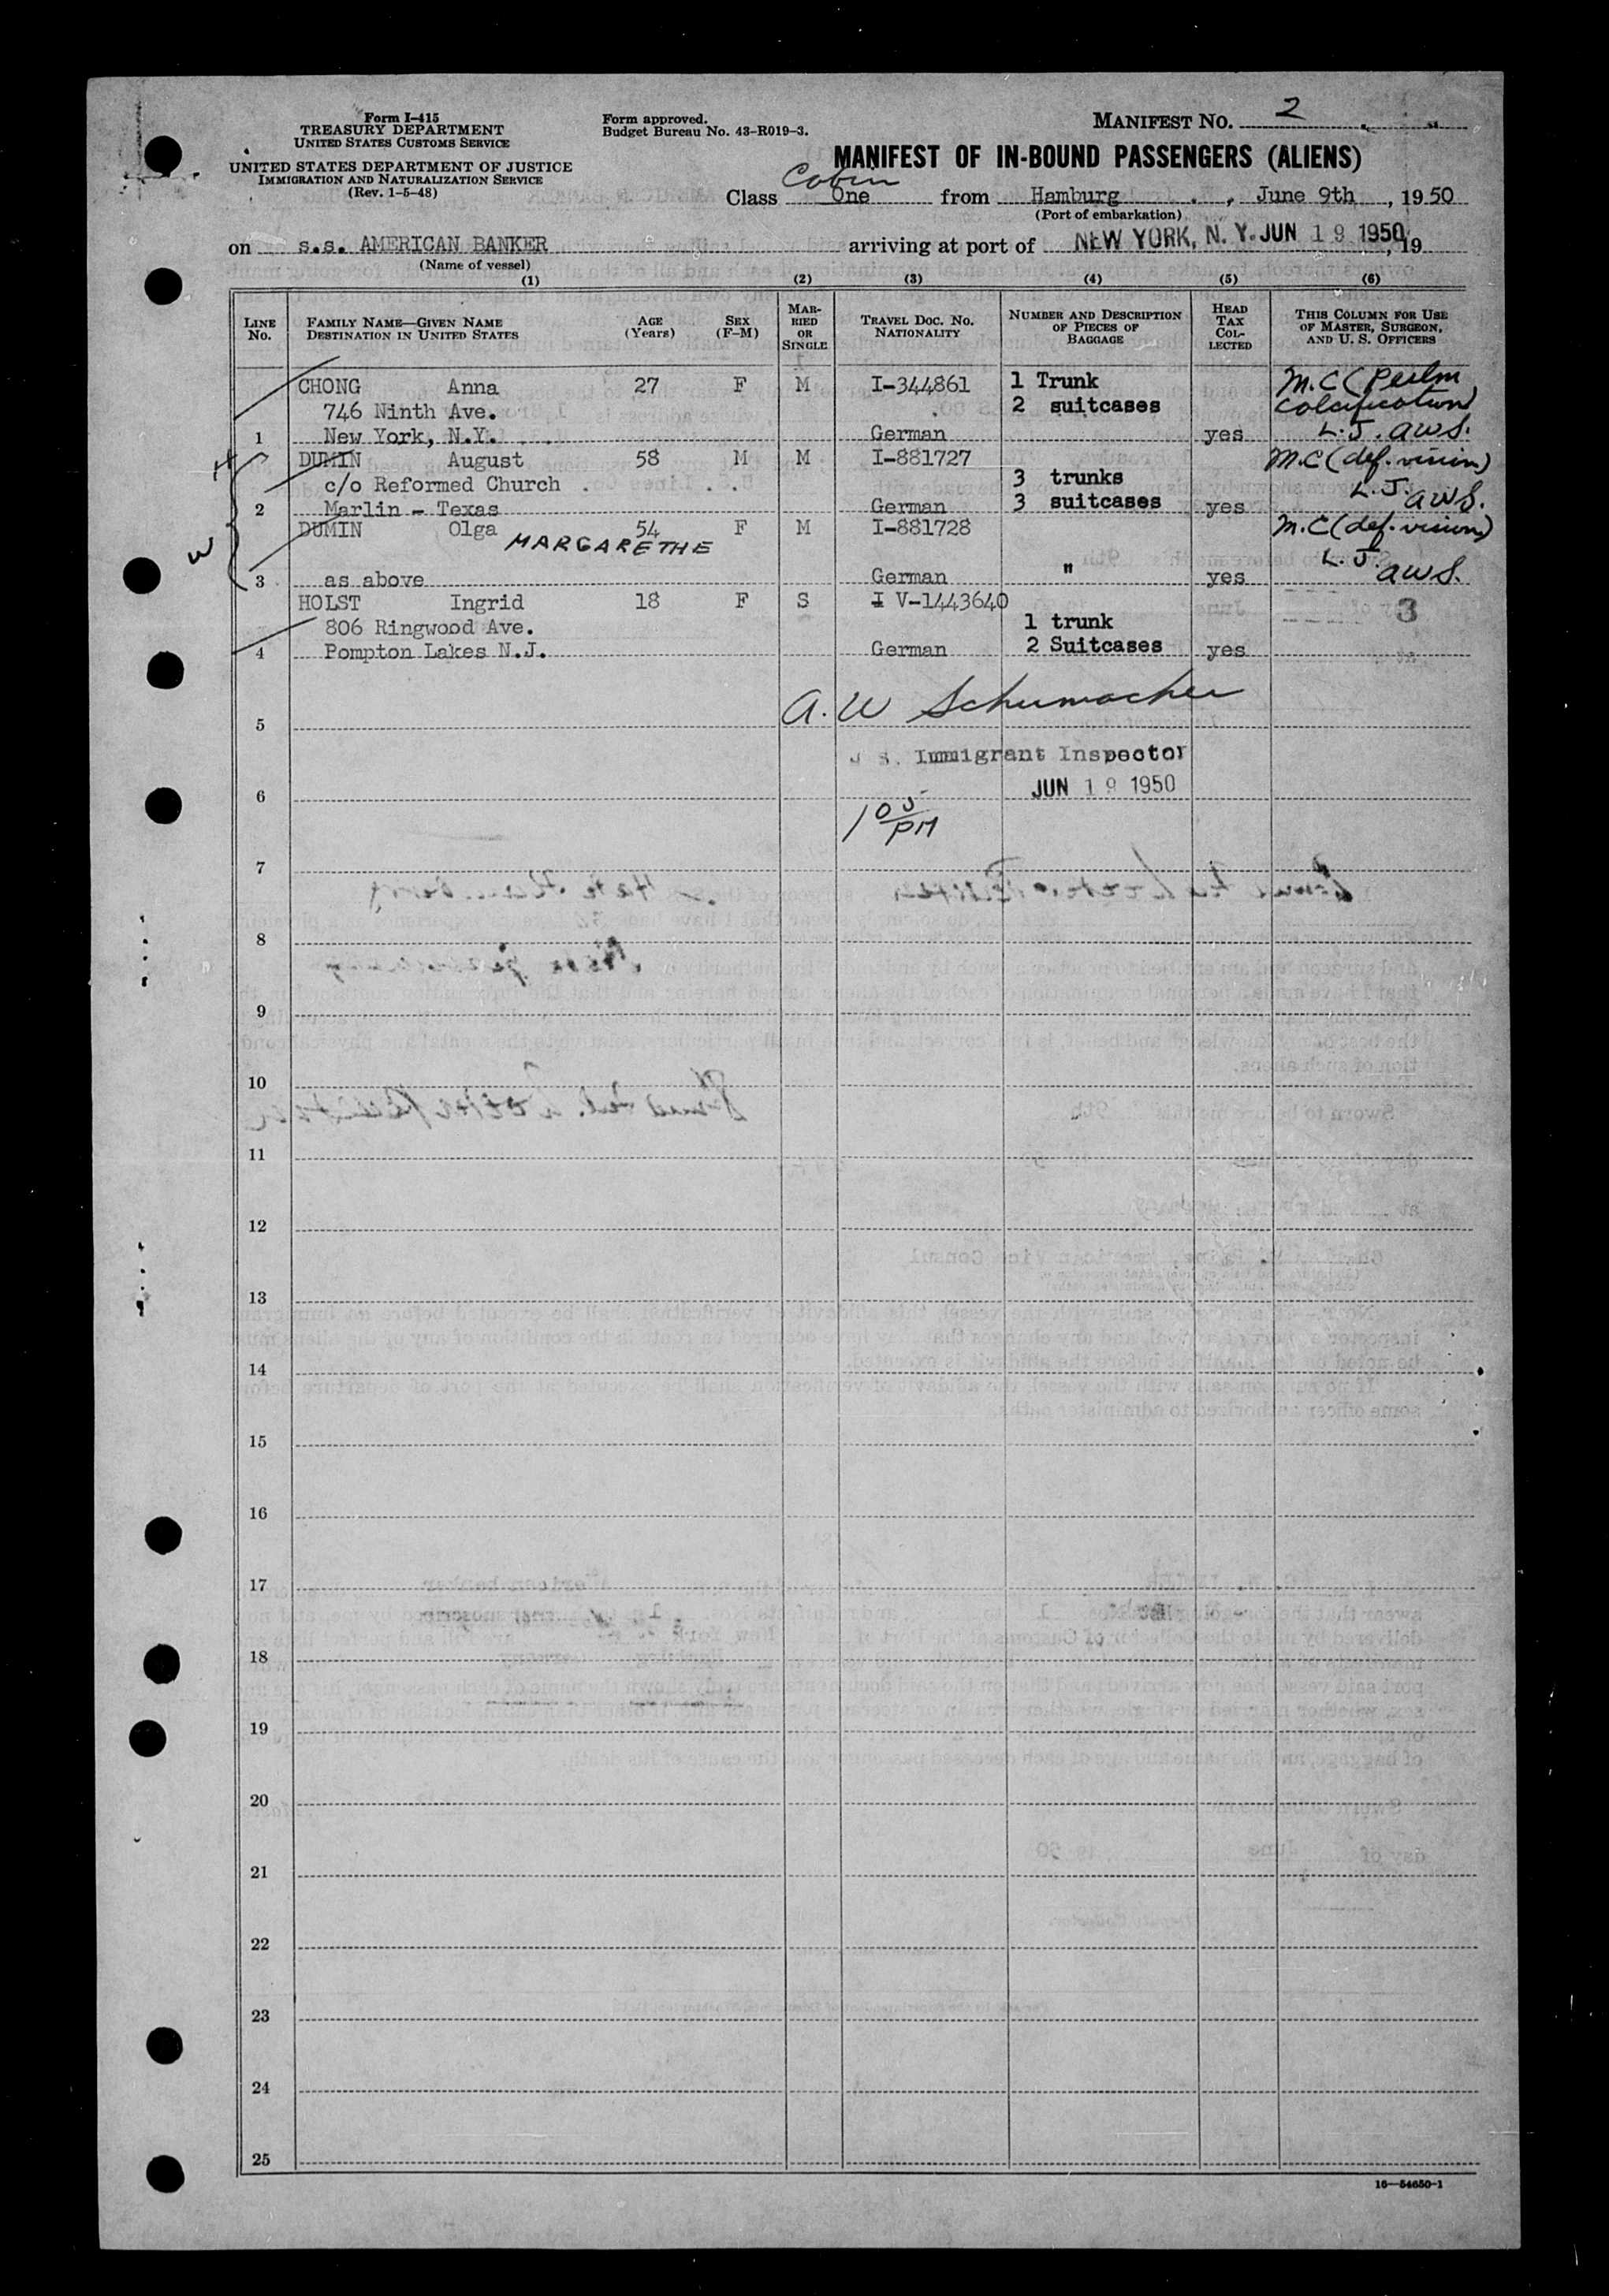 Form I-415
TREASURY DEPARTMENT
UNITED STATES CUSTOMS SERVICE
UNITED STATES DEPARTMENT OF JUSTICE
IMMIGRATION AND NATURALIZATION SERVICE
(Rev. 1-5-48)
Form approved.
Budget Bureau No. 43-R019-3.
MANIFEST NO. 2
MANIFEST OF IN-BOUND PASSENGERS (ALIENS)
Cabin
Class One from Hamburg, June 9th, 1950
(Port of embarkation)
on s.s. AMERICAN BANKER arriving at port of NEW YORK, N. Y. JUN 19 1950, 19
(Name of vessel)
(1) (2) (3) (4) (5) (6)
LINE NO.
FAMILY NAME—GIVEN NAME
DESTINATION IN UNITED STATES
AGE (Years)
SEX (F-M)
MARRIED OR SINGLE
TRAVEL DOC. NO. NATIONALITY
NUMBER AND DESCRIPTION OF PIECES OF BAGGAGE
HEAD TAX COLLECTED
THIS COLUMN FOR USE OF MASTER, SURGEON, AND U. S. OFFICERS
CHONG Anna 27 F M I-344861 1 Trunk M.C (Pulm
746 Ninth Ave. 2 suitcases Calcification)
1 New York, N.Y. German yes L.J. AWS.
DUMIN August 58 M M I-881727 M.C (def. vision)
c/o Reformed Church 3 trunks L.J.
2 Marlin - Texas German 3 suitcases yes AWS.
DUMIN Olga 54 F M I-881728 M.C (def. vision)
MARGARETHE L.J.
3 as above German " yes AWS.
HOLST Ingrid 18 F S I V-1443640 3
806 Ringwood Ave. 1 trunk
4 Pompton Lakes N.J. German 2 Suitcases yes
W
A. W Schumacher
5
U S. Immigrant Inspector
6 JUN 19 1950
1 05 PM
7
8
9
10
11
12
13
14
15
16
17
18
19
20
21
22
23
24
25
16—54650-1